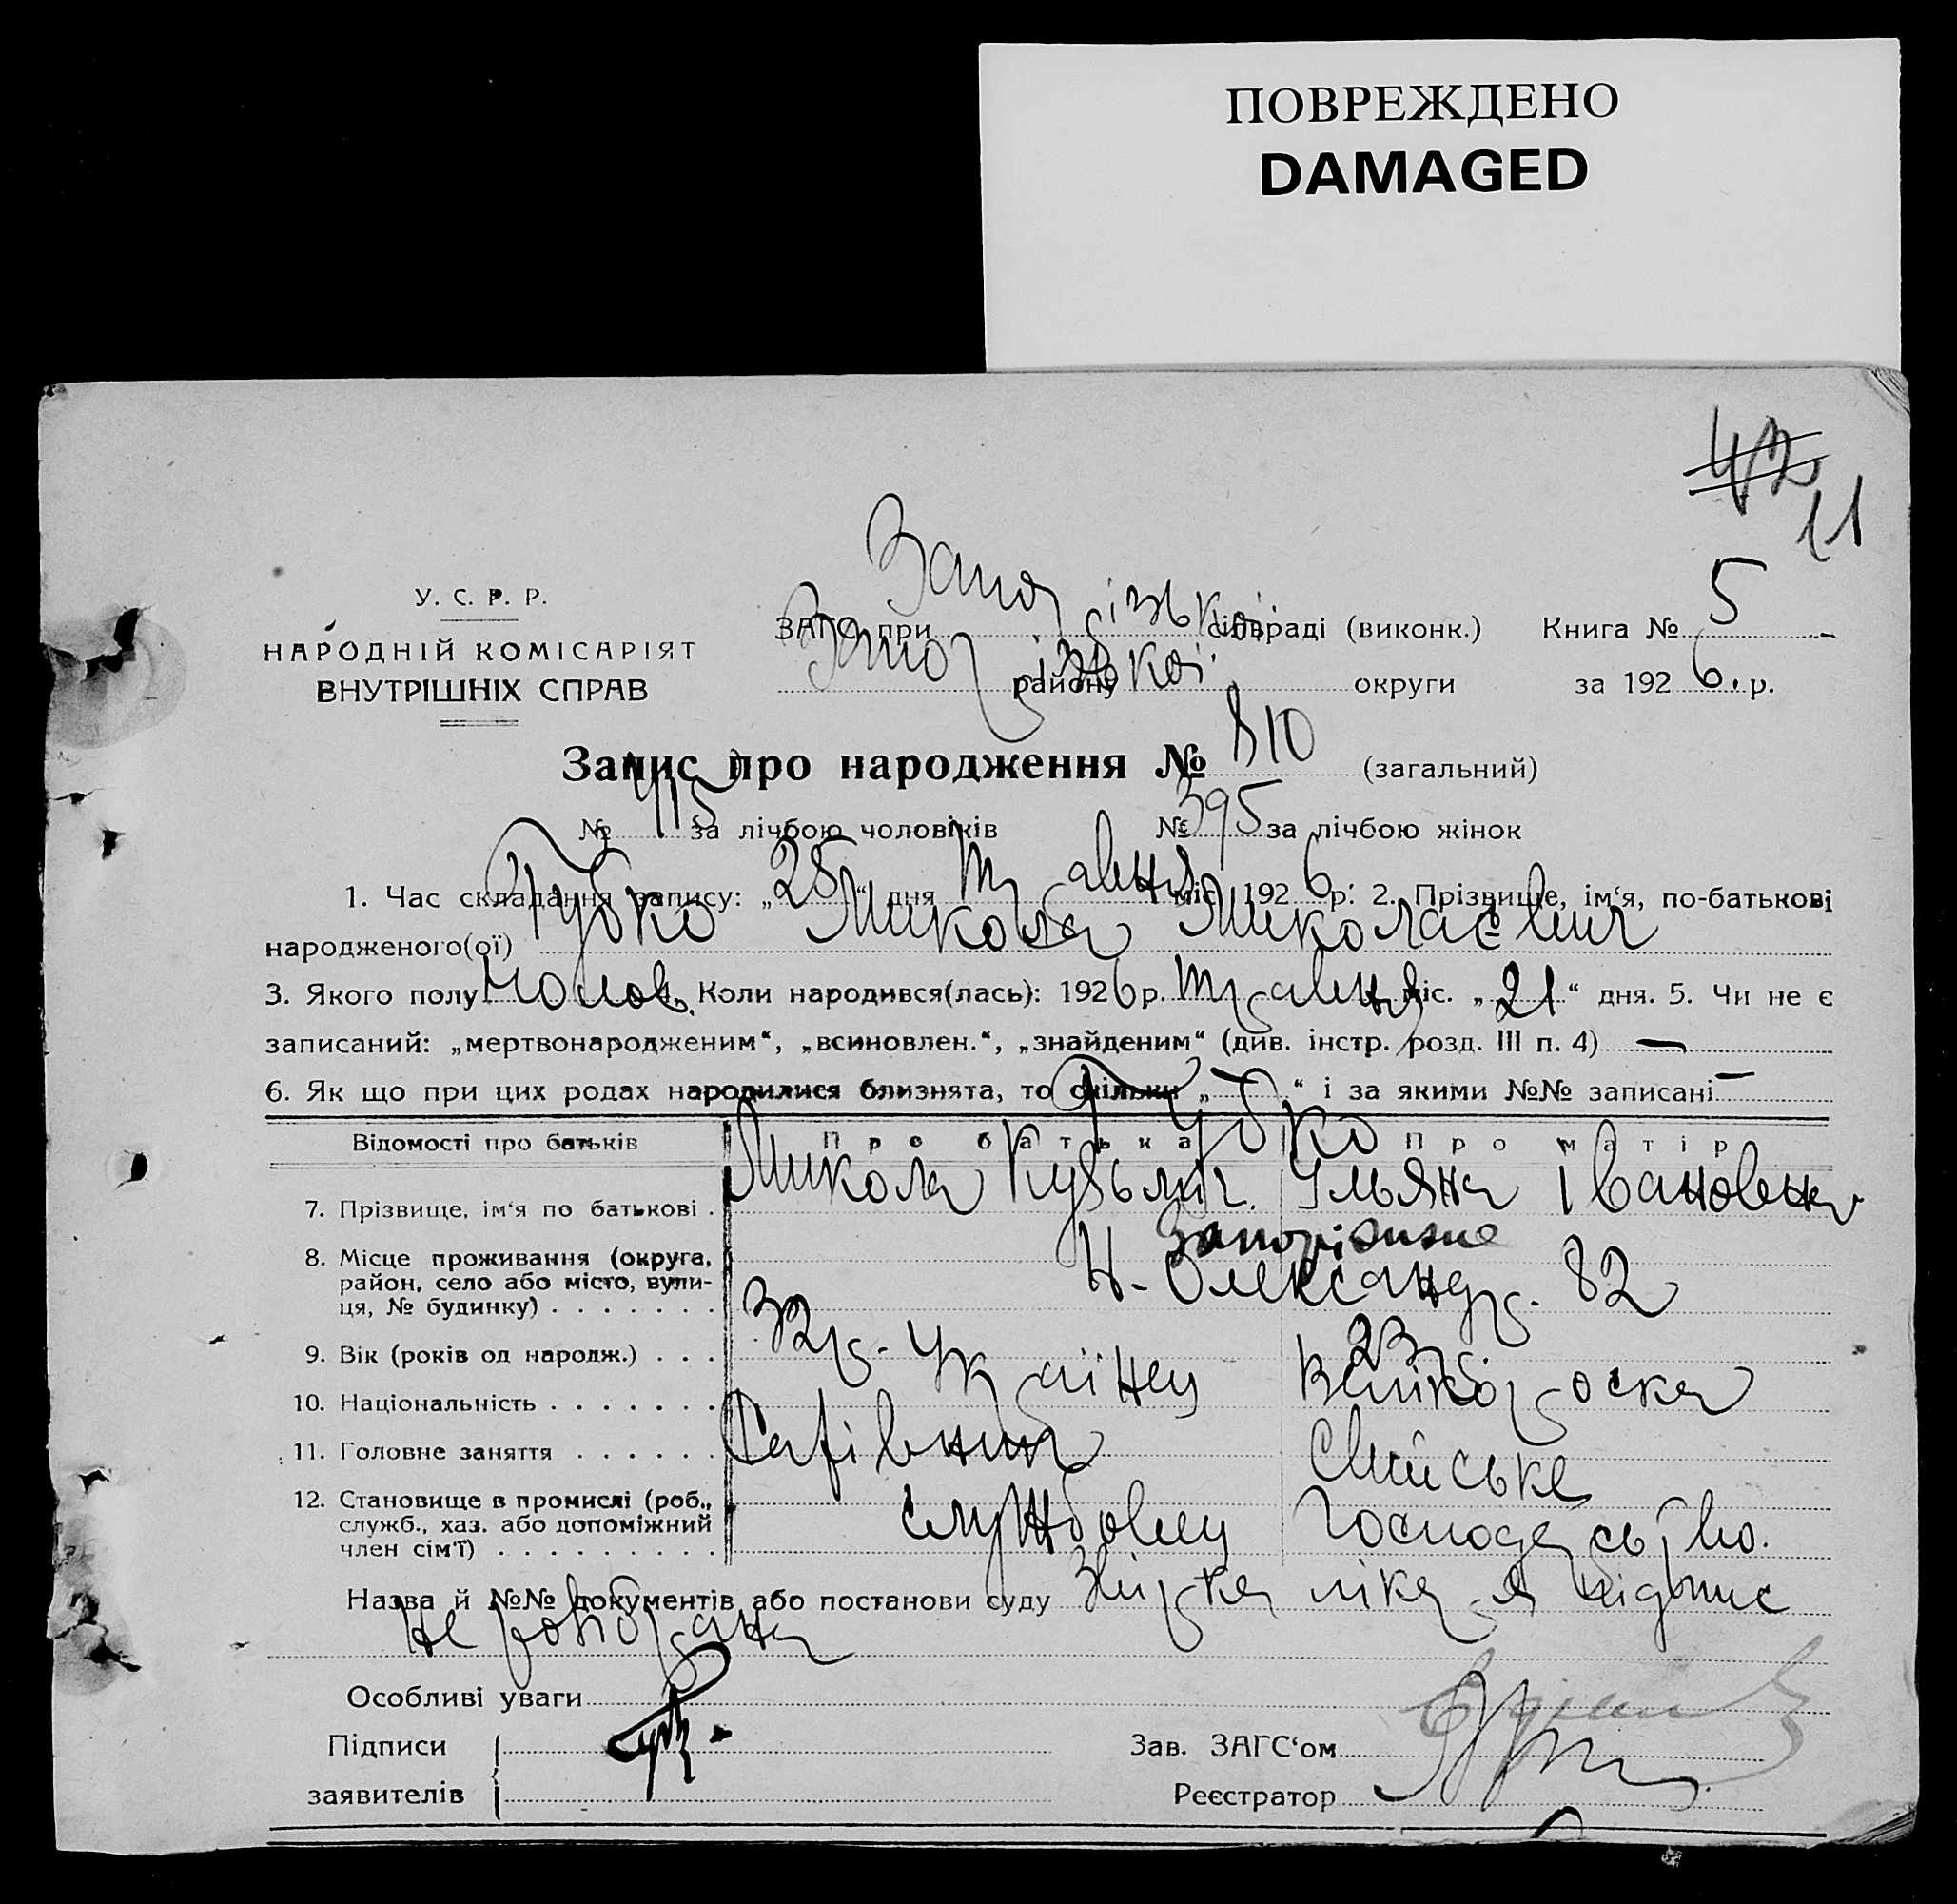 ПОВРЕЖДЕНО
DAMAGED
42
11
У. С. Р. Р.
НАРОДНІЙ КОМІСАРІЯТ
ВНУТРІШНІХ СПРАВ
ЗАГС при Запорізької сільраді (виконк.) Книга № 5
Запорізької району округи за 1926. р.
Запис про народження № 810 (загальний)
№ 415 за лічбою чоловіків № 395 за лічбою жінок
1. Час складання запису: „25“ дня Травня міс. 1926 р. 2. Прізвище, ім‘я, по-батькові
народженого(ої) Губко Микола Миколаєвич
3. Якого полу чолов. 4. Коли народився(лась): 1926 р. Травня міс. „21“ дня. 5. Чи не є
записаний: „мертвонародженим“, „всиновлен.“, „знайденим“ (див. інстр. розд. III п. 4) —
6. Як що при цих родах народилися близнята, то скільки „—“ і за якими №№ записані —
Відомості про батьків Про батька Про матір
Губко
7. Прізвище, ім‘я по батькові . Микола Кузьмич. Ульяна Івановна
8. Місце проживання (округа, Запоріжжє
район, село або місто, вули- Н-Олександр. 82
ця, № будинку) . . . . . . .
9. Вік (років од народж.) . . . 32 р. 23 р.
10. Національність . . . . . . . Українец Великороска
11. Головне заняття . . . . . . Сімейське
12. Становище в промислі (роб., службовец господарство.
служб., хаз. або допоміжний
член сім‘ї) . . . . . . . . .
Назва й №№ документів або постанови суду лікаря підпис
не розібрана
Особливі уваги
Підписи
заявителів
Зав. ЗАГС‘ом
Реєстратор